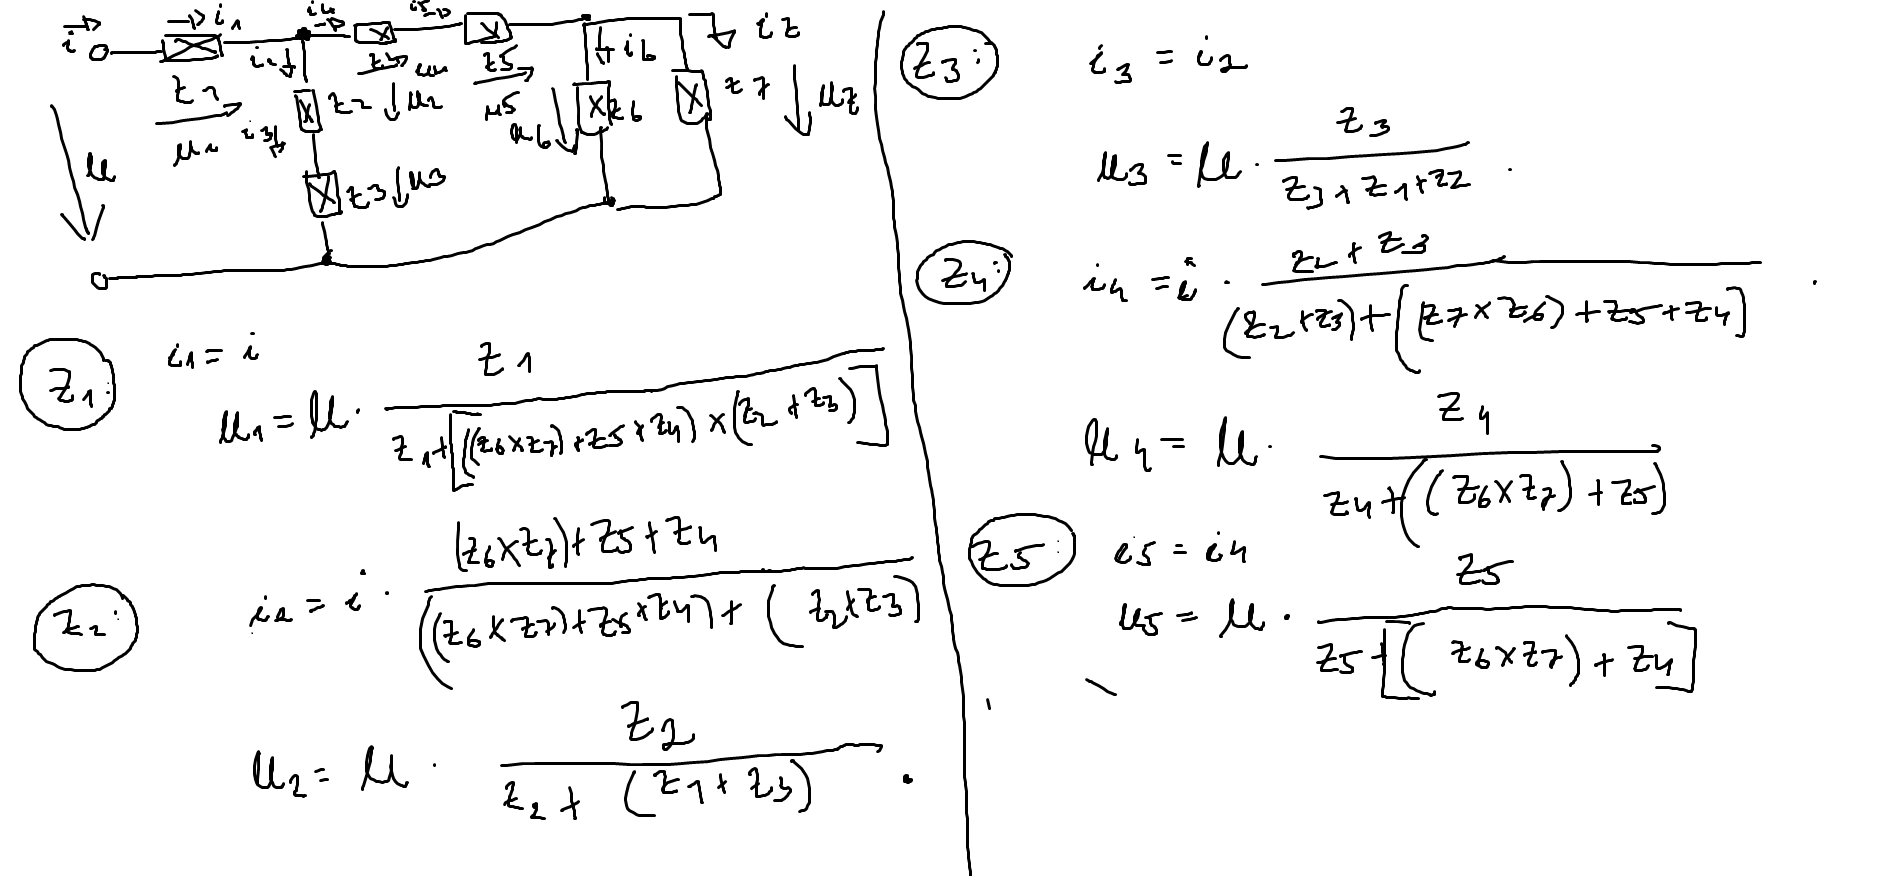 i i1 i4 i5 i7
i2 i6
Z1 Z4 u4 Z5
u1 i3 Z2 u2 u5 u6 Z6 Z7 u7
u Z3 u3
Z1: i1 = i
u1 = u · Z1 / Z1+[((Z6×Z7)+Z5+Z4)×(Z2+Z3)]
Z2: i2 = i · (Z6×Z7)+Z5+Z4 / ((Z6×Z7)+Z5+Z4)+(Z2+Z3)
u2 = u · Z2 / Z2+(Z1+Z3)
Z3: i3 = i2
u3 = u · Z3 / Z3+Z1+Z2
Z4: i4 = i · Z2+Z3 / (Z2+Z3)+[(Z7×Z6)+Z5+Z4]
u4 = u · Z4 / Z4+((Z6×Z7)+Z5)
Z5: i5 = i4
u5 = u · Z5 / Z5+[(Z6×Z7)+Z4]